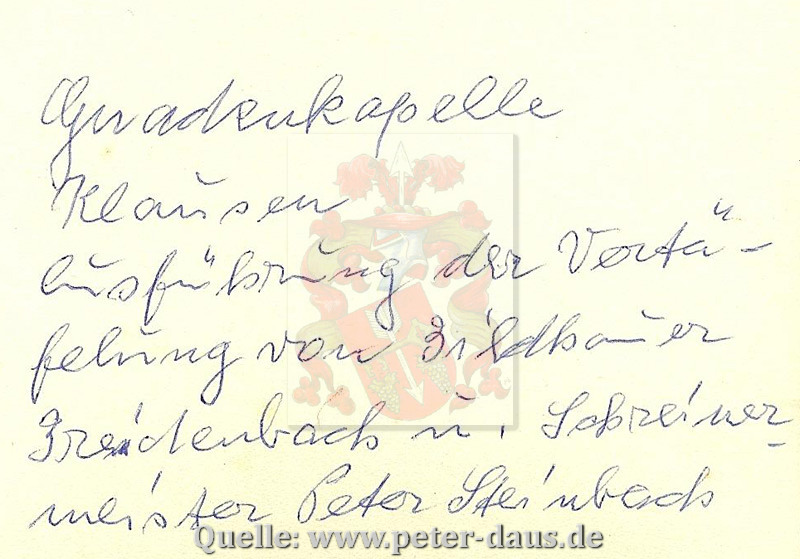 Gnadenkapelle
Klausen
Ausführung der Vertä-
felung von Bildhauer
Breidenbach u. Schreiner-
meister Peter Steinbach
Quelle: www.peter-daus.de